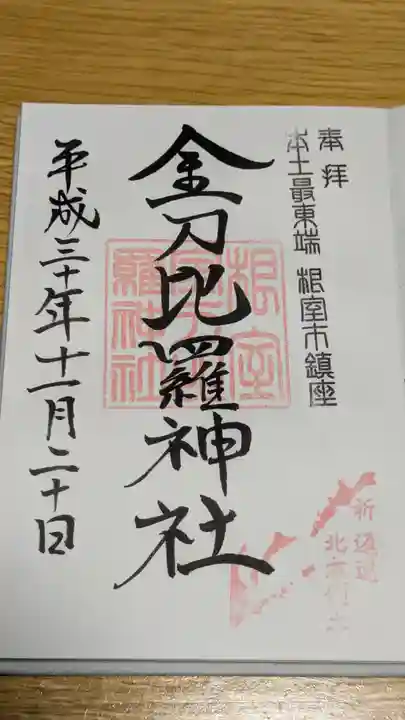 奉拝
本土最東端 根室市鎮座
金刀比羅神社
平成三十年十一月二十日
根室
金刀比
羅神社
祈 返還
北方領土